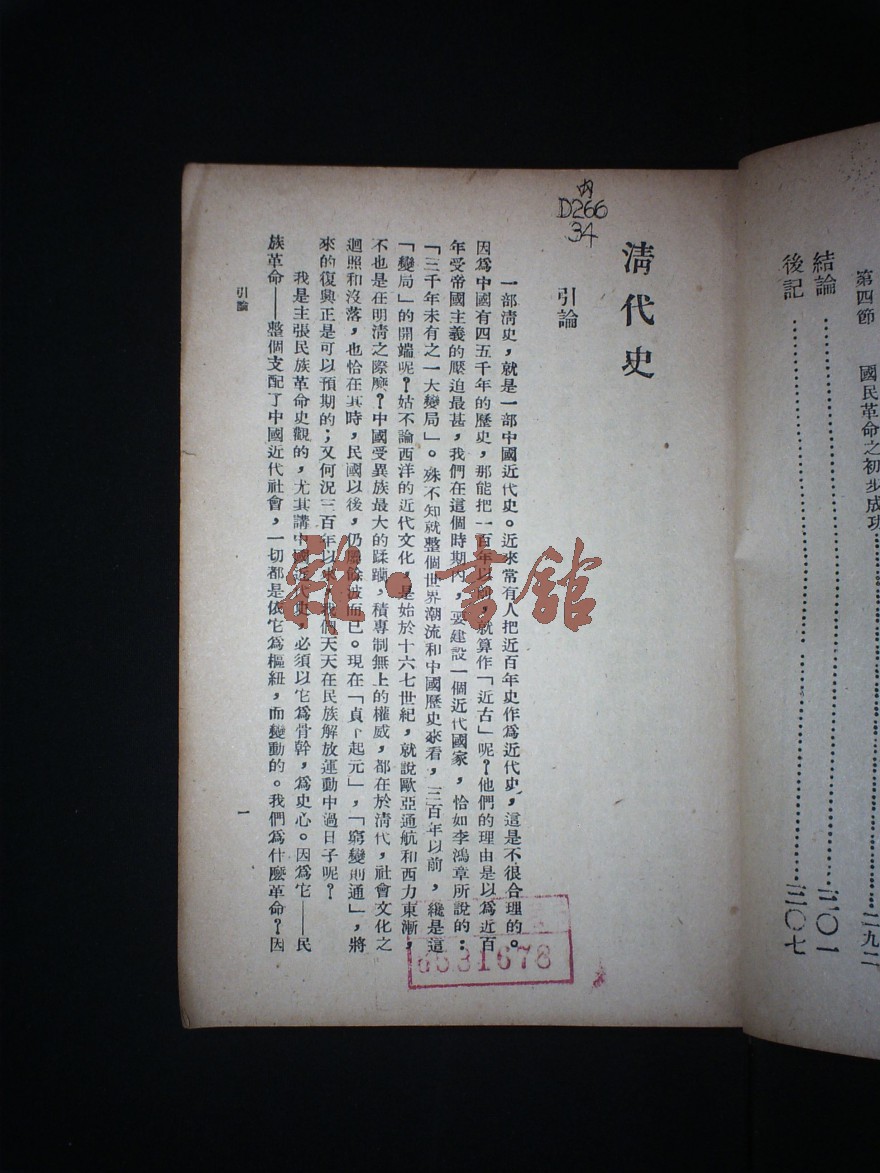 第四節　國民革命之初步成功……二九二
結論……三〇一
後記……三〇七
内
D266
34
清代史
引論
一部清史，就是一部中國近代史。近來常有人把近百年史作爲近代史，這是不很合理的。
因爲中國有四五千年的歷史，那能把一百年以前，就算作「近古」呢？他們的理由是以爲近百
年受帝國主義的壓迫最甚，我們在這個時期內，要建設一個近代國家，恰如李鴻章所說的：
「三千年未有之一大變局」。殊不知就整個世界潮流和中國歷史來看，三百年以前，纔是這
「變局」的開端呢？姑不論西洋的近代文化，是始於十六七世紀，就說歐亞通航和西力東漸，
不也是在明清之際麽？中國受異族最大的蹂躪，積專制無上的權威，都在於清代，社會文化之
迴照和沒落，也恰在其時，民國以後，仍餘波而已。現在「貞下起元」，「窮變則通」，將
來的復興正是可以預期的；又何況三百年以來，我們天天在民族解放運動中過日子呢？
我是主張民族革命史觀的，尤其講中國近代史，必須以它爲骨幹，爲史心。因爲它——民
族革命——整個支配了中國近代社會，一切都是依它爲樞紐，而變動的。我們爲什麽革命？因
引論
一
6531678
雜·書館